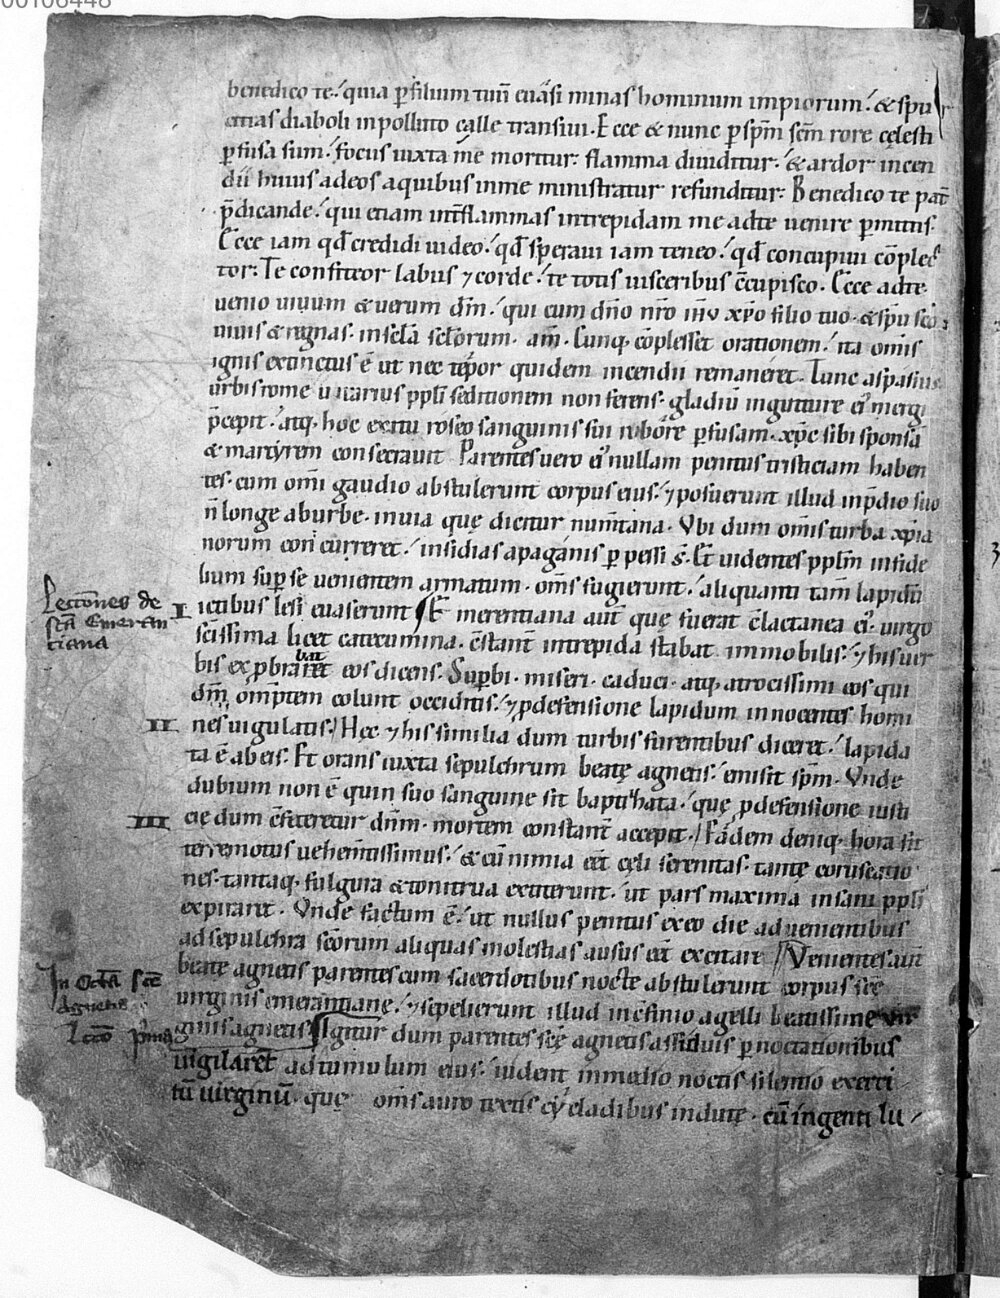 00106448
benedico te. quia p̄ filium tuū euasi minas hominum impiorum. & spur
citias diaboli inpolluto calle transiui. Ecce & nunc p sp̄m sc̄m rore cęlesti
p̄fusa sum. focus iuxta me moritur. flamma diuiditur. & ardor incen
dii huius ad eos a quibus in me ministratur refunditur. Benedico te pat̄
p̄dicande. qui etiam int̄ flammas intrepidam me ad te uenire p̄mittis.
Ecce iam qd̄ credidi uideo. qd̄ speraui iam teneo. qd̄ concupiui cōplec
tor. Te confiteor labiis ⁊ corde. te totis uisceribus c̄cupisco. Ecce ad te
uenio uiuum & uerum dm̄. qui cum dn̄o nr̄o ih̄u xp̄o filio tuo. & sp̄u sc̄o
uiuis & regnas. in scl̄a sclorum. am̄. Cunq. cōplesset orationem. ita omīs
ignis extinctus ē ut nec tepor quidem incendii remaneret. Tunc aspasius
urbis rome uicarius ppl̄i seditionem non ferens. gladiū in gutture ei' mergi
p̄cepit. atq. hoc exitu roseo sanguinis sui robore p̄fusam. xp̄c sibi sponsā
& martyrem consecrauit. Parentes uero ei' nullam penitus tristiciam haben
tes. cum omī gaudio abstulerunt corpus eius. ⁊ posuerunt illud in p̄dio suo
n̄ longe ab urbe. in uia quę dicitur num̄tana. Vbi dum omīs turba xp̄ia
norum concurreret. insidias a paganis p̄pessi s̄. Et uidentes ppl̄m infide
lium sup̄ se uenientem armatum. omīs fugierunt. aliquanti tam̄ lapidū
Lectiones de
sc̄a Emeren
tiana
I ictibus lesi euaserunt. Emerentiana aut̄ quę fuerat c̄lactanea ei'. uirgo
sc̄issima licet catecumina. c̄stant̄ intrepida stabat immobilis. ⁊ his uer
bis exp̄braret eos dicens. Sup̄bi. miseri. caduci. atq. atrocissimi eos qui
bat
dm̄ omp̄tem colunt occiditis. ⁊ p defensione lapidum innocentes homi
II nes iugulatis. Hęc ⁊ his similia dum turbis furentibus diceret. lapida
ta ē ab eis. Et orans iuxta sepulchrum beatę agnetis. emisit sp̄m. Vnde
dubium non ē quin suo sanguine sit baptizata. quę p defensione iusti
III cię dum c̄fiteretur dn̄m. mortem constant̄ accepit. Eadem deniq. hora fit
terremotus uehem̄tissimus. & cū nimia eēt cęli serenitas. tantę coruscatio
nes. tantaq. fulgura & tonitrua extiterunt. ut pars maxima insani ppl̄i
expiraret. Vnde factum ē. ut nullus penitus ex eo die aduenientibus
ad sepulchra sc̄orum aliquas molestias ausus eēt excitare. Venientes aut̄
beatę agnetis parentes cum sacerdotibus nocte abstulerunt corpus sc̄ę
In Octa sc̄e
Agnetis
Lcō p̄ma
uirginis emerantianę. ⁊ sepelierunt illud in c̄finio agelli beatissime uir
ginis agnetis. Igitur dum parentes sc̄ę agnetis assiduis p̄noctationibus
uigilaret ad tumulum eius. uident in medio noctis silentio exerci
tū uirginū. quę omīs auro textis cycladibus indutę. cū ingenti lu